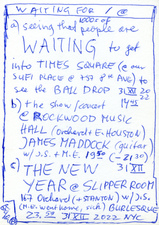 WAITING FOR / @
a) seeing that 1000s of people are
WAITING to get
into TIMES SQUARE (@ our
SUFI PLACE @ +57 & 8th AVE) to
see the BALL DROP 31 XII 2022
14 45
b) the show / concert
@ ROCKWOOD MUSIC
HALL (orchard + E. HOUSTON)
JAMES MADDOCK (guitar
w / J.S. + M.E. 19 50 (-21 30)
31 XII
c) THE NEW
YEAR @ SLIPPER ROOM
167 Orchard (+ STANTON) w / J.S.
(M.E. went home, sick) BURLESQUE
23, 50 31 XII 2022 NYC